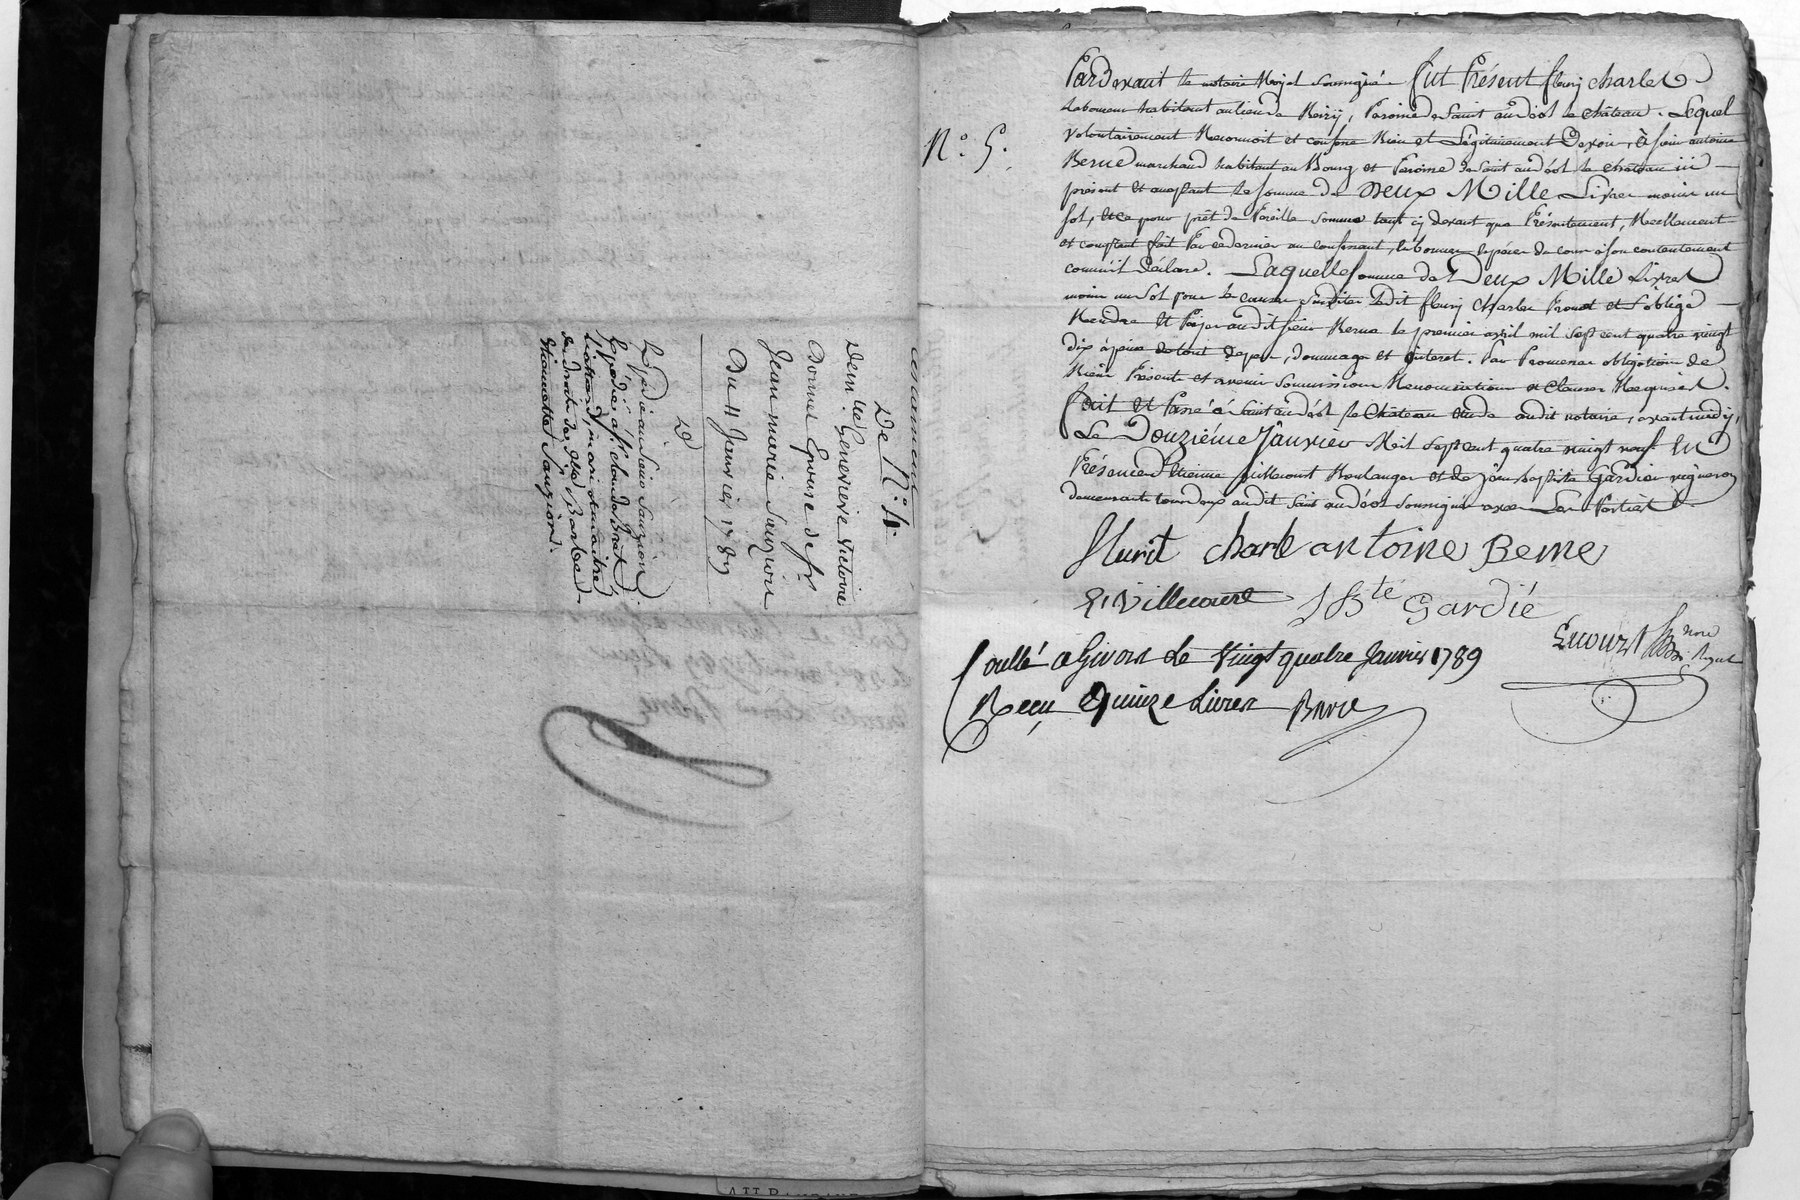 Testament
De N.o 4.
Dem.lle Geneviève Victoire
Bonnet Epouse de Sr.
Jean marie Sauzion
Du 11 Janvier 1789
Expédié au Sieur Sauzion.
Expédié a Sr. Claude
en droits de
Etiennette Sauzion.
N.o 5.
Pardevant le notaire Royal soussigné fut Présent fleury charlet
Laboureur habitant au lieu de Reiry, Paroisse de Saint andéol le château. Lequel
volontairement Reconnoit et confesse Bien et Légitimement Devoir, à sieur antoine
Berne marchand habitant au Bourg et Paroisse de Saint andéol le château ici
présent et acceptant la somme de Deux Mille Livres moins un
sol, et ce pour prêt de Pareille somme tant cy devant que Présentement, Réellement
et comptant fait Par ce dernier au confessant, en bonnes espèces de cour à son contentement
comm'il Déclare. Laquelle somme de Deux Mille Livres
moins un sol pour les causes susdites ledit fleury charlet Promet et s'oblige
Rendre et Payer audit sieur Berne le premier avril mil sept cent quatre vingt
dix à peine de tout depens, dommages et interet. Par Promesse obligation de
Biens Présents et avenir Soumissions Renonciations et clauses Requises.
fait et Passé à Saint andéol le Château etude dudit notaire, avant midy,
Le Douzième Janvier Mil sept cent quatre vingt neuf En
Présence d'Etienne Villecourt Boulanger et de Jean baptiste Gardier vigneron
demeurants tous deux audit Saint andéol soussignés avec Les Parties.
flurit charle antoine Berne
E. Villecourt JBte Gardié
nore Royal
Collé a Givors Le Vingt quatre Janvier 1789
Reçu Quinze Livres